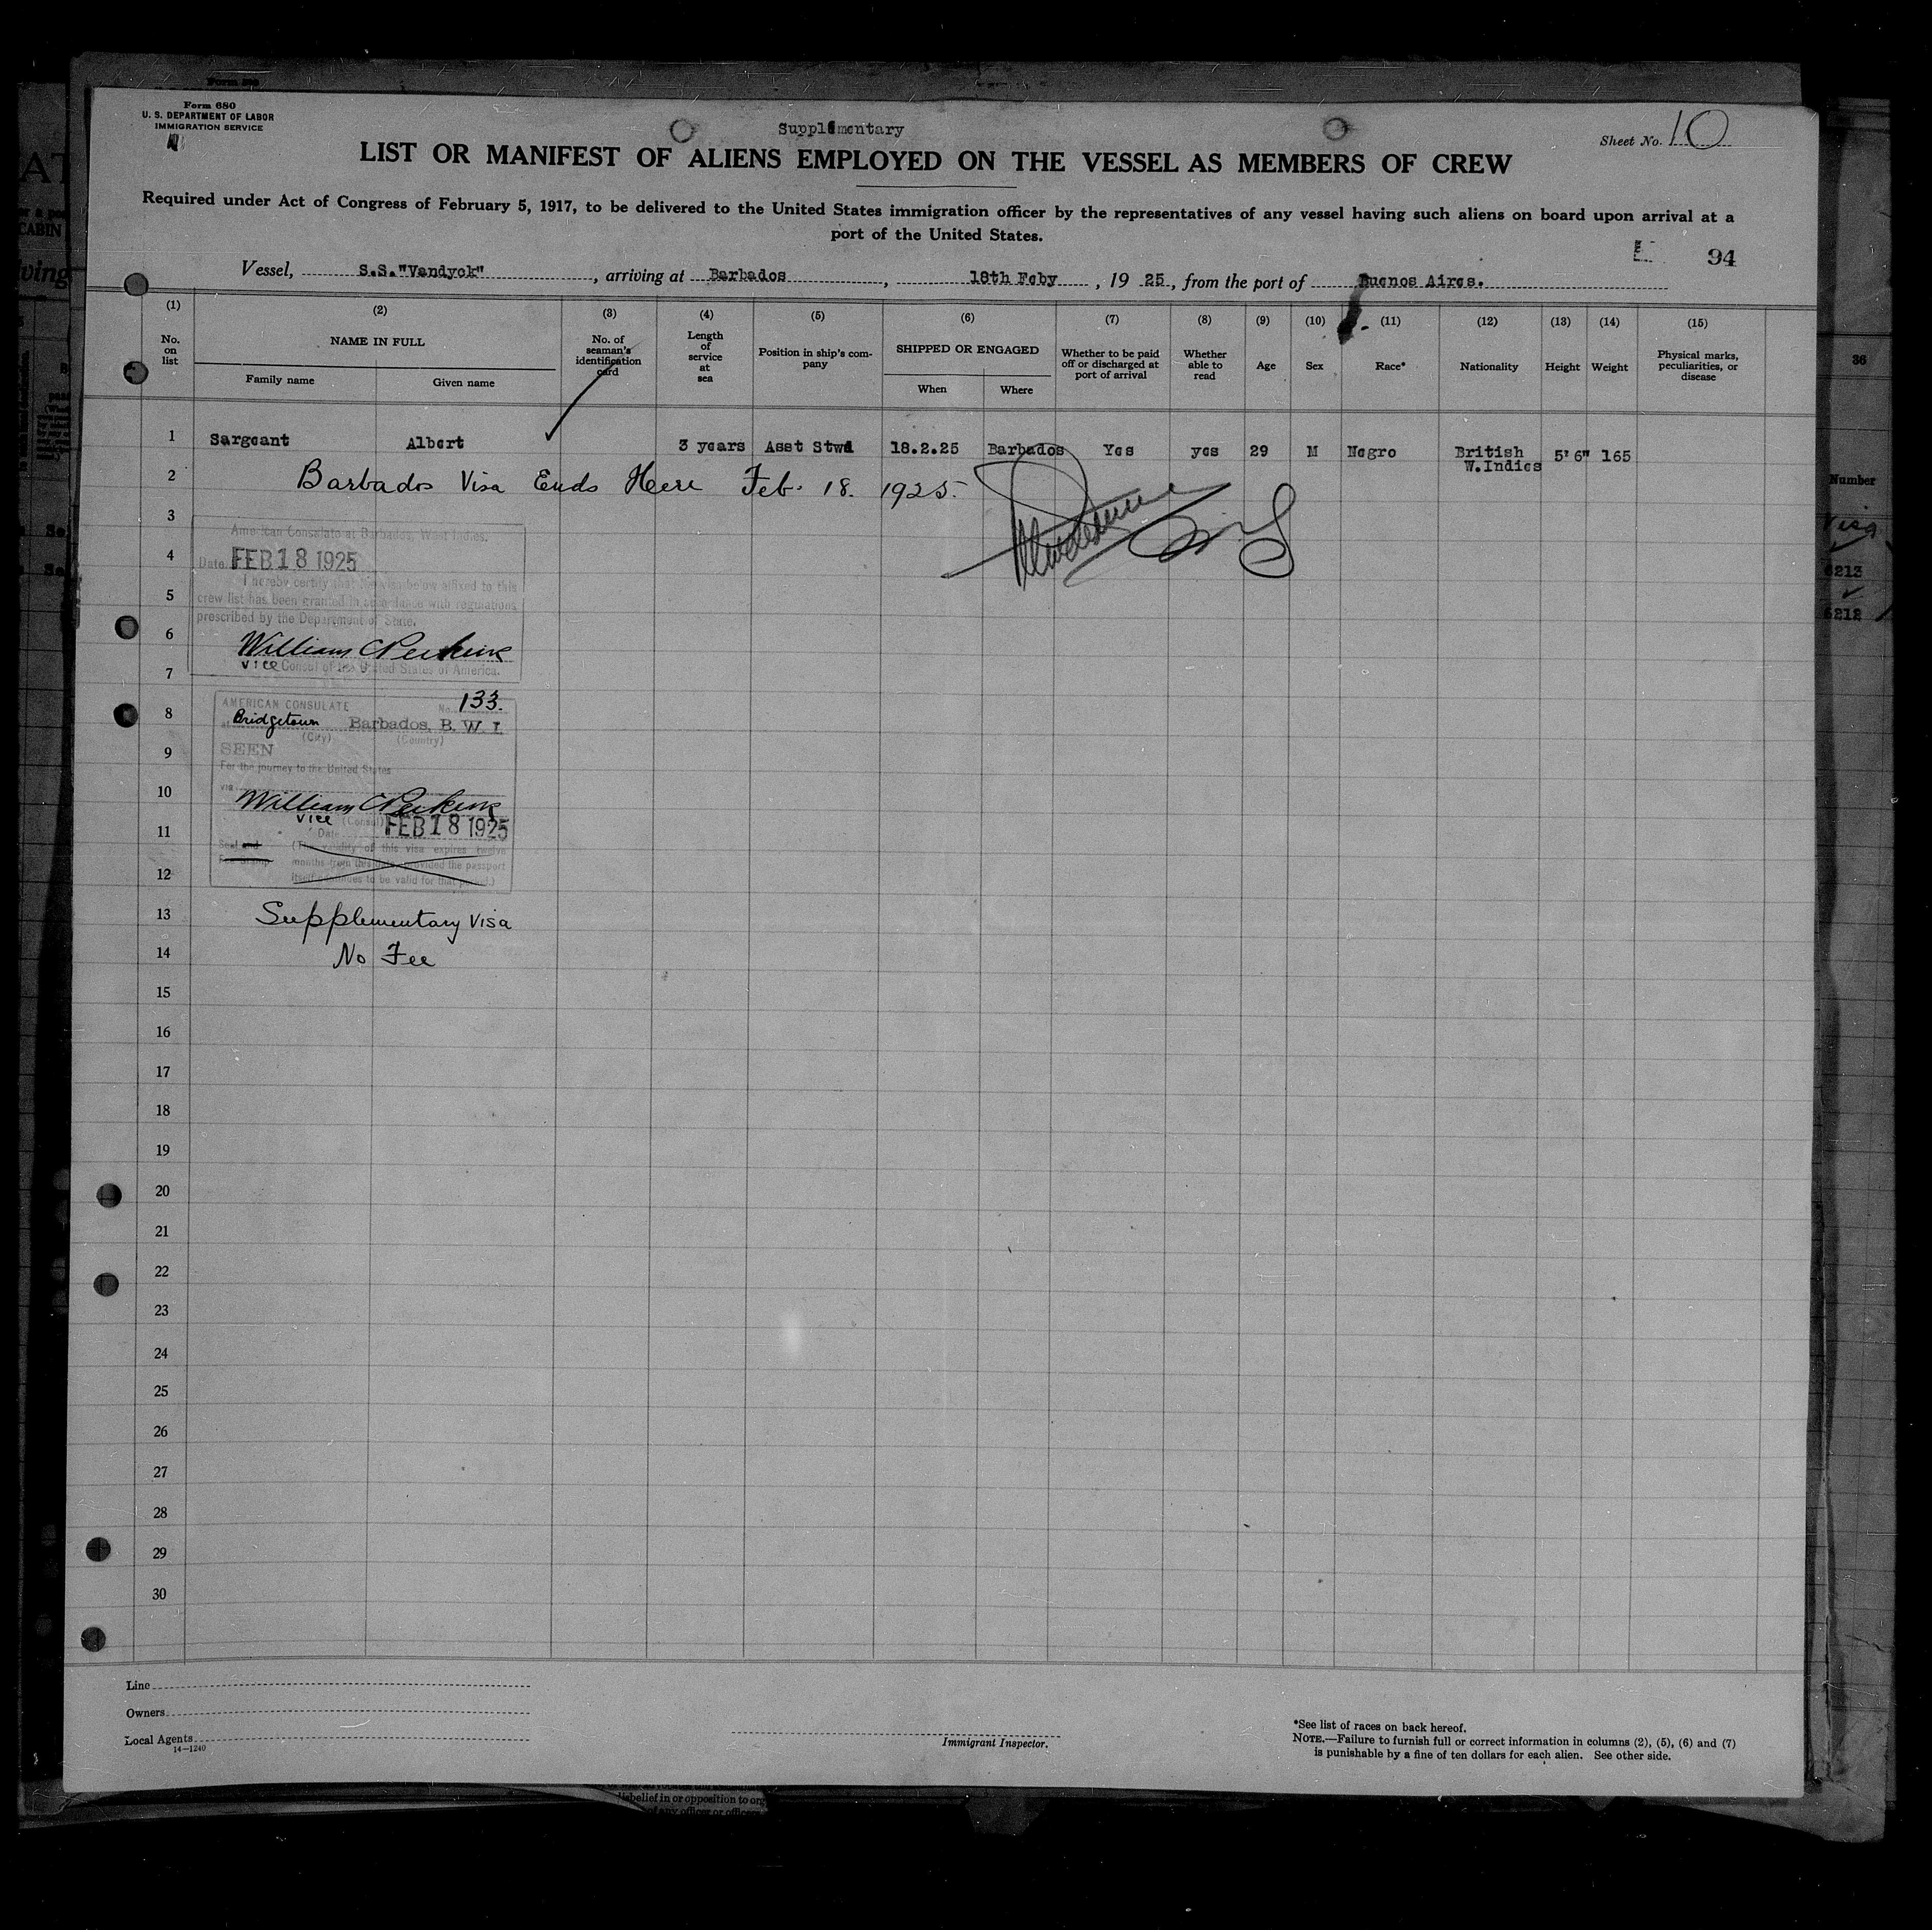 Form 680
U. S. DEPARTMENT OF LABOR
IMMIGRATION SERVICE
Supplementary
Sheet No. 10
LIST OR MANIFEST OF ALIENS EMPLOYED ON THE VESSEL AS MEMBERS OF CREW
Required under Act of Congress of February 5, 1917, to be delivered to the United States immigration officer by the representatives of any vessel having such aliens on board upon arrival at a
port of the United States.
94
Vessel, S.S."Vandyck", arriving at Barbados, 18th Feby, 19 25, from the port of Buenos Aires.
(1) (2) (3) (4) (5) (6) (7) (8) (9) (10) (11) (12) (13) (14) (15)
No. on list
NAME IN FULL
Family name Given name
No. of seaman's identification card
Length of service at sea
Position in ship's company
SHIPPED OR ENGAGED
When Where
Whether to be paid off or discharged at port of arrival
Whether able to read
Age
Sex
Race*
Nationality
Height
Weight
Physical marks, peculiarities, or disease
1 Sargeant Albert 3 years Asst Stwd 18.2.25 Barbados Yes yes 29 M Negro British W.Indies 5' 6" 165
2 Barbados Visa Ends Here Feb. 18. 1925.
3
American Consulate at Barbados, West Indies.
4
Date FEB 18 1925
I hereby certify that the visa below affixed to this
5
crew list has been granted in accordance with regulations
prescribed by the Department of State.
6
William C Perkins
7
vice Consul of the United States of America.
AMERICAN CONSULATE No. 133.
8
at Bridgetown Barbados, B. W. I.
(City) (Country)
9
SEEN
For the journey to the United States
10
via
William C Perkins
vice (Consul)
11
Date FEB 18 1925
Seal and (The validity of this visa expires twelve
Fee Stamp months from this date provided the passport
12
itself continues to be valid for that period.)
13
Supplementary Visa
14
No Fee
15
16
17
18
19
20
21
22
23
24
25
26
27
28
29
30
Line
Owners
Local Agents
14—1240
Immigrant Inspector.
*See list of races on back hereof.
NOTE.—Failure to furnish full or correct information in columns (2), (5), (6) and (7)
is punishable by a fine of ten dollars for each alien. See other side.
36
Number
Visa
6213
6212
disbelief in or opposition to org
of any officer or officer